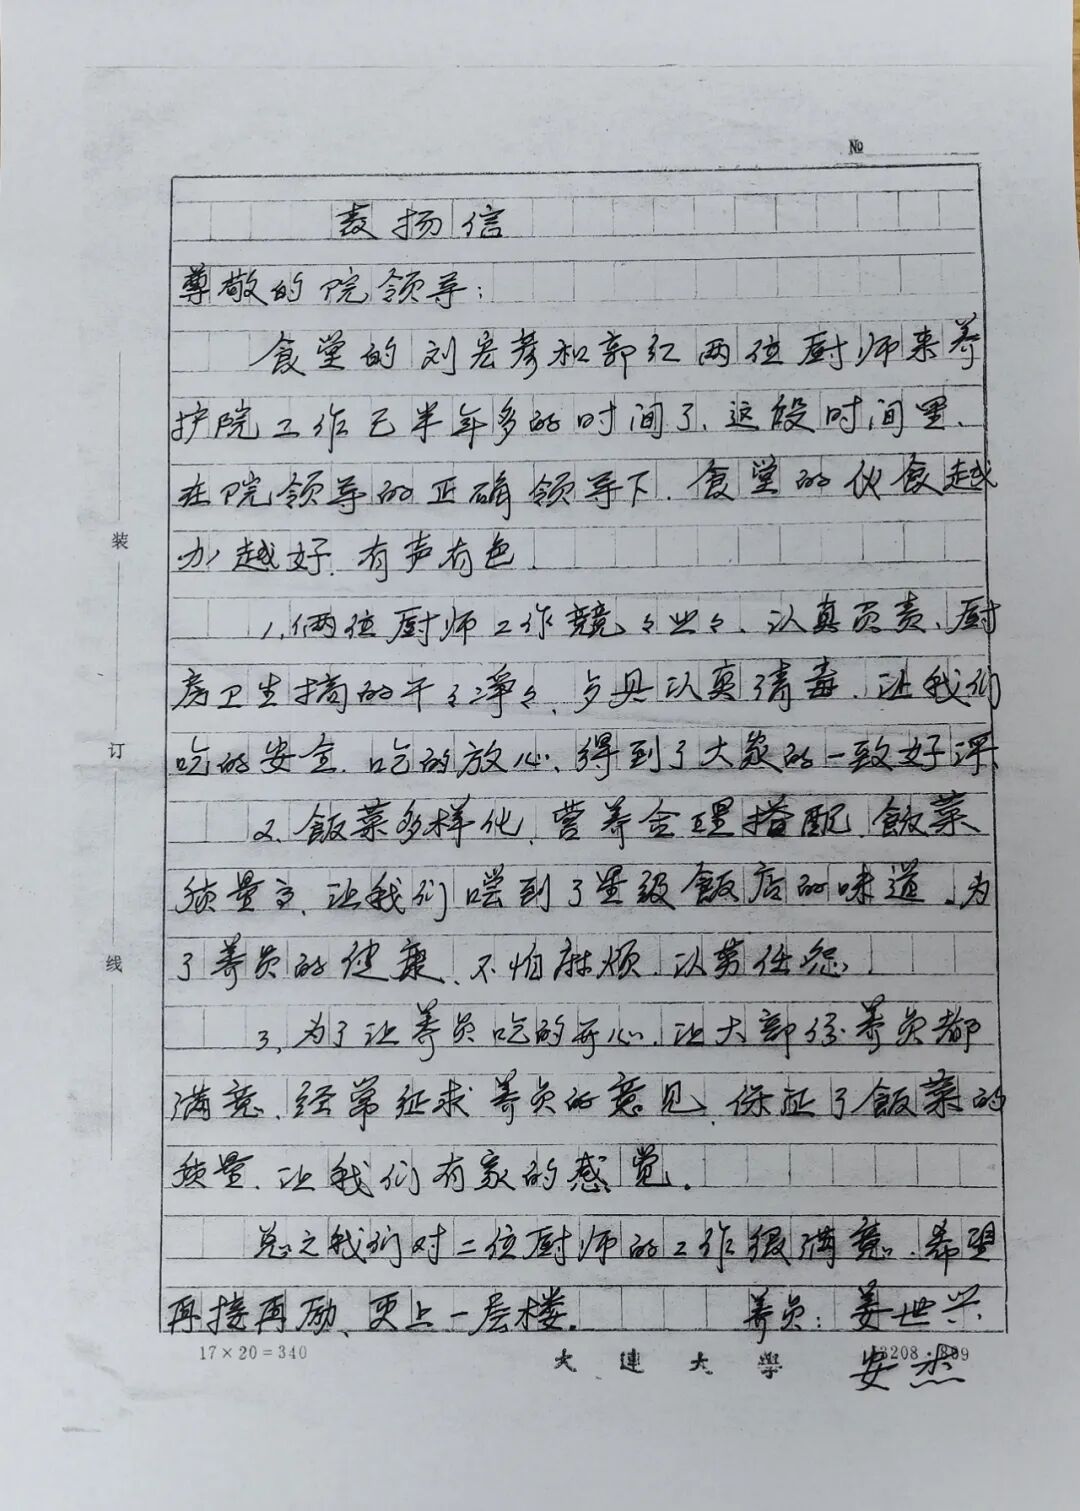 №
表扬信
尊敬的院领导：
食堂的刘宏彦和郭红两位厨师来养
护院工作已半年多的时间了、这段时间里、
在院领导的正确领导下、食堂的伙食越
办越好、有声有色、
1、俩位厨师工作兢々业々、认真负责、厨
房卫生搞的干々净々、歺具认真清毒、让我们
吃的安全、吃的放心、得到了大家的一致好评、
2、飯菜多样化、营养合理搭配、飯菜
质量高、让我们嚐到了星级飯店的味道。为
了养员的健康、不怕麻烦、以劳任怨、
3、为了让养员吃的开心、让大部份养员都
满意、经常征求养员的意见、保证了飯菜的
质量、让我们有家的感觉。
总之我们对二位厨师的工作很满意、希望
再接再励、更上一层楼。 养员：姜世兴
安杰
17×20=340
大連大學
装
订
线